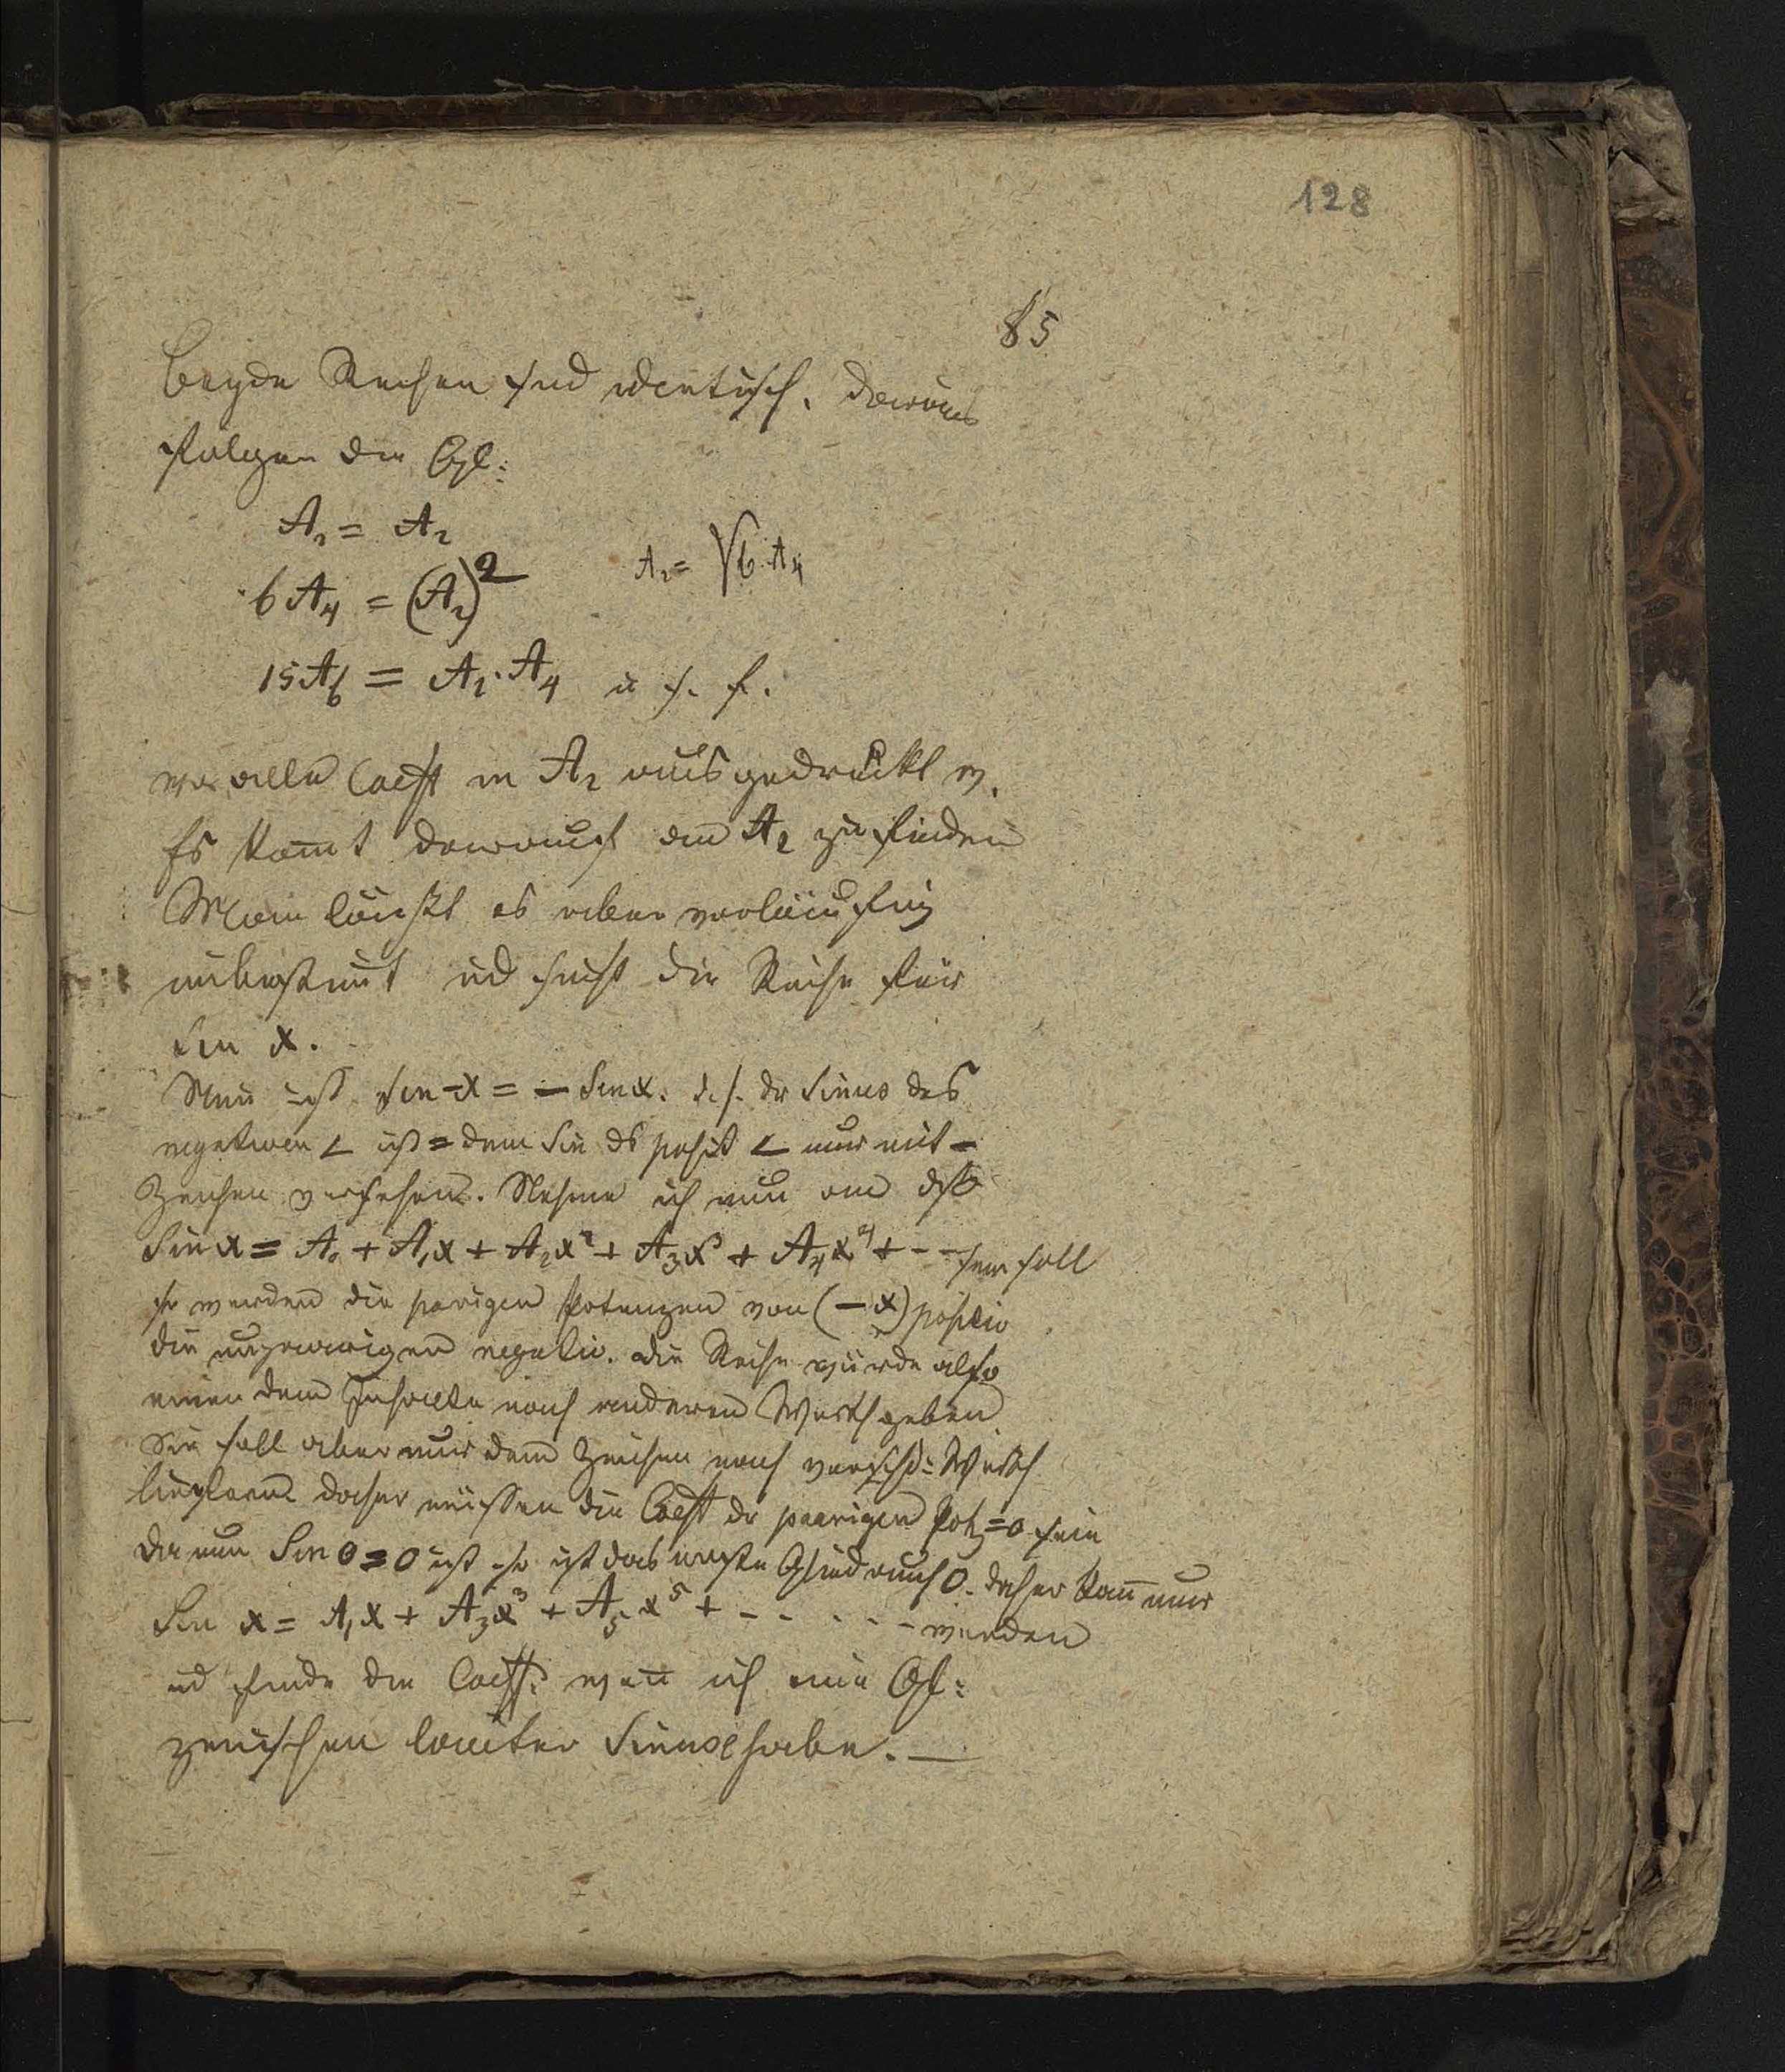 128
85
beyde Reihen sind identisch. daraus
folgen die Gl:
A₂ = A₂
6 A₄ = (A₂)² A₂ = √6 A₄
15 A₆ = A₂ · A₄ u s. f.
wo alle Coeff in A₂ ausgedrückt w.
Es kom̅t darauf an A₂ zu finden
Man läßt es aber vorläufig
unbestim̅t und sucht die Reihe für
Sin x.
Nun ist Sin -x = - Sin x. d. h. der Sinus des
negativen ∠ ist = dem Sin ds posit ∠ nur mit -
Zeichen versehen. Nehme ich nun an daß
Sin x = A₀ + A₁x + A₂x² + A₃x³ + A₄x⁴ + - - sein soll
so werden die parigen Potenzen von (-x) positiv
die unpaarigen negativ. die Reihe würde also
einen dem Inhalte nach anderen Werth geben
Sie soll aber nur dem Zeichen nach verschd: Werth
liefern. daher müssen die Coeff der paarigen Potz = 0 sein
da nun Sin 0 = 0 ist so ist das erste Glied auch 0. daher kan̅ nur
Sin x = A₁x + A₃x³ + A₅x⁵ + - - - - - - werden
und finde die Coeff: wen̅ ich eine Gl:
zwischen lauter Sinus habe. —